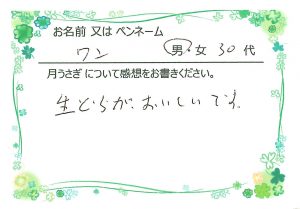 お名前 又は ペンネーム
ワン 男・女 30代
月うさぎ について感想をお書きください。
生どらが、おいしいです。